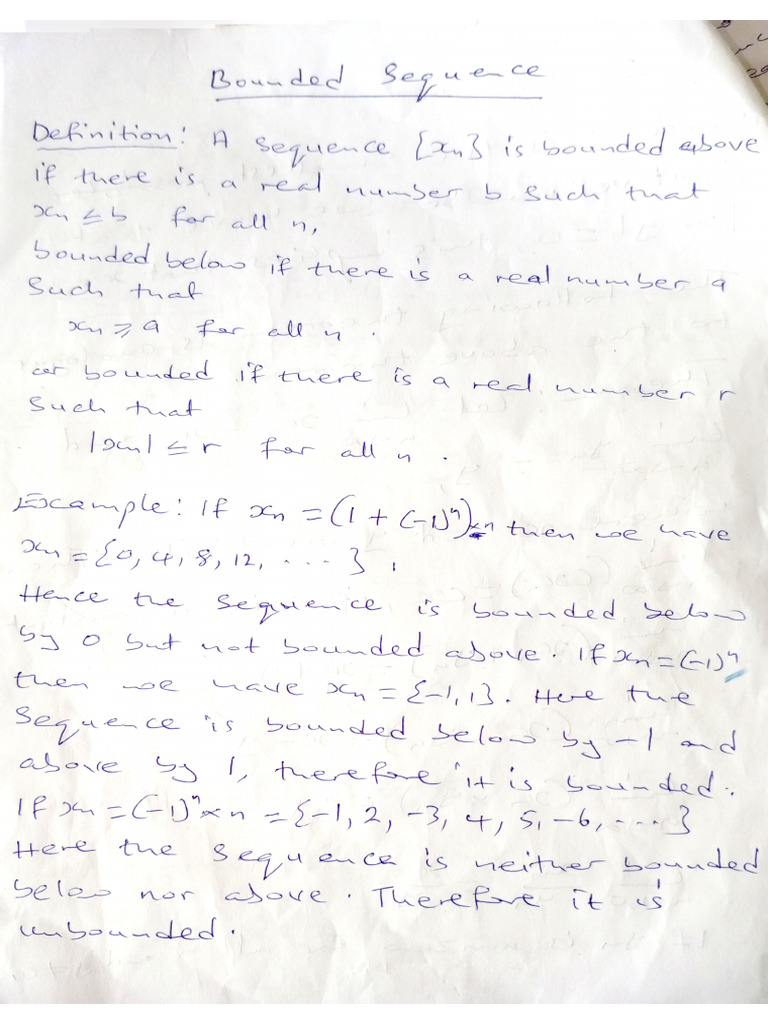 Bounded Sequence
Definition: A sequence {xn} is bounded above
if there is a real number b such that
xn ≤ b for all n,
bounded below if there is a real number a
such that
xn ≥ a for all n.
or bounded if there is a real number r
such that
|xn| ≤ r for all n.
Example: If xn = (1 + (-1)ⁿ)×n then we have
xn = {0, 4, 8, 12, ....}.
Hence the sequence is bounded below
by 0 but not bounded above. If xn = (-1)ⁿ
then we have xn = {-1, 1}. Here the
sequence is bounded below by -1 and
above by 1, therefore it is bounded.
If xn = (-1)ⁿ × n = {-1, 2, -3, 4, 5, -6, ....}
Here the sequence is neither bounded
below nor above. Therefore it is
unbounded.